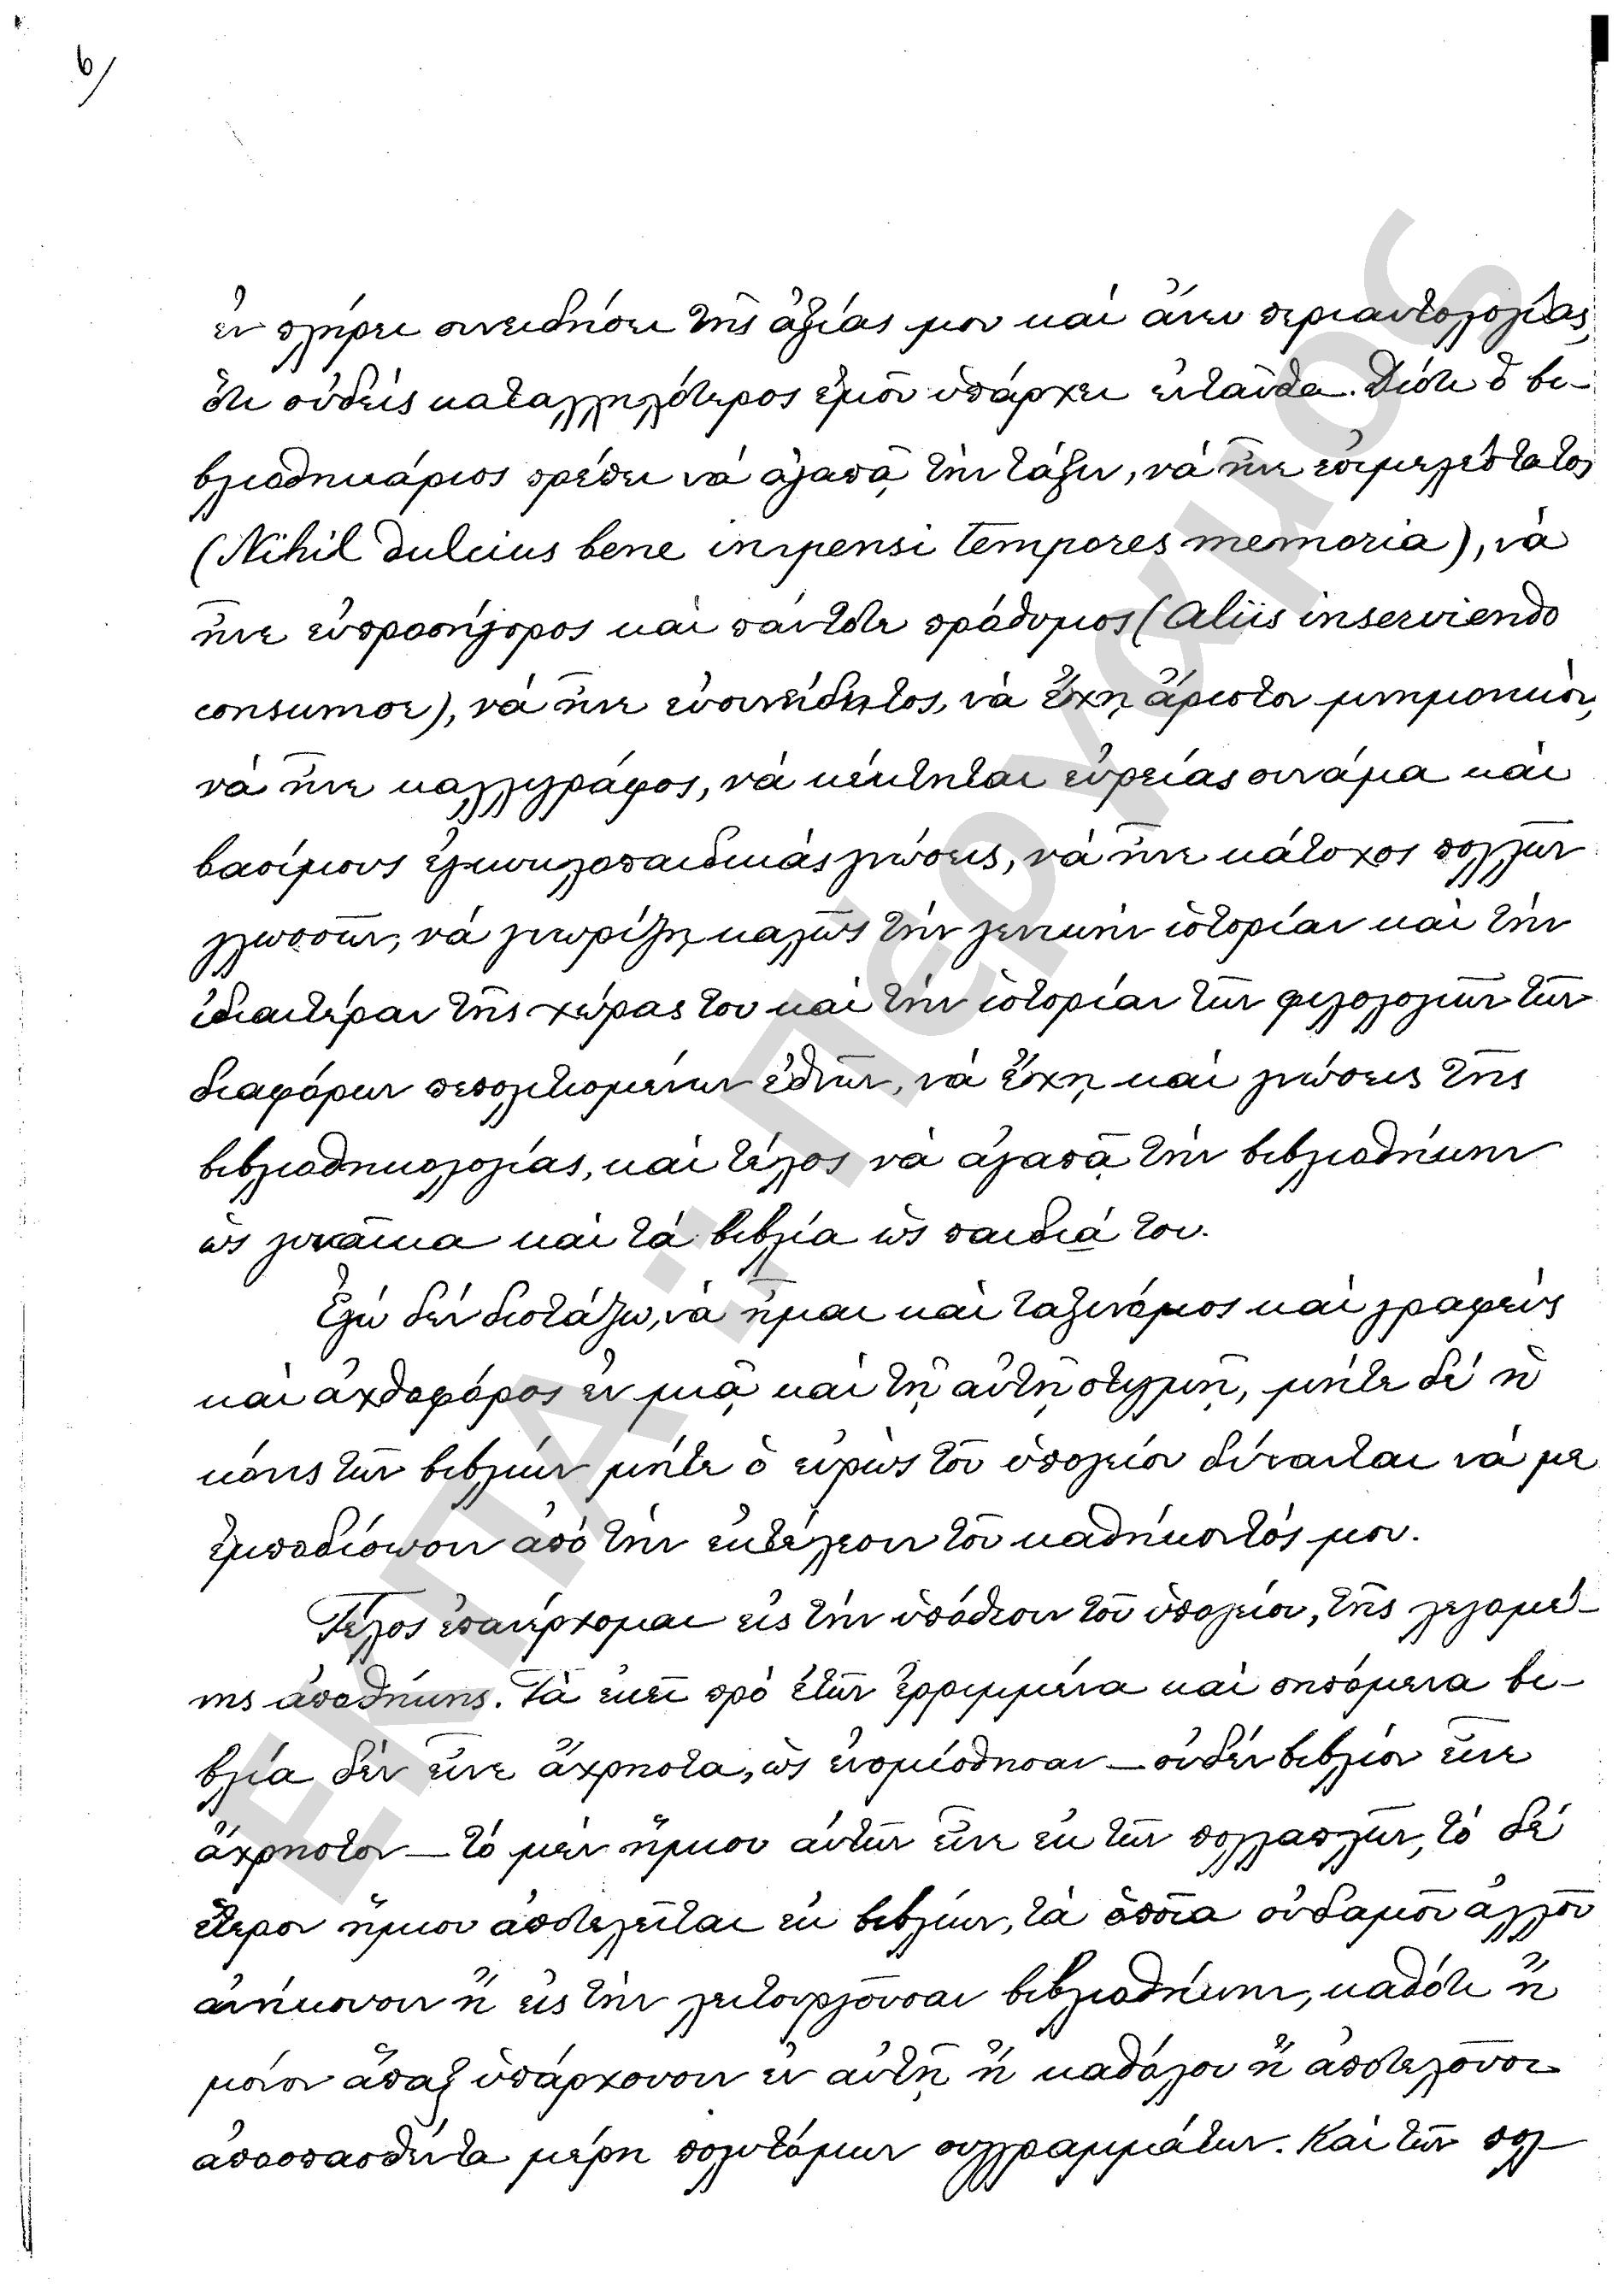 6/
ἐν πλήρει συνειδήσει τῆς ἀξίας μου καὶ ἄνευ περιαυτολογίας,
ὅτι οὐδεὶς καταλληλότερος ἐμοῦ ὑπάρχει ἐνταῦθα. Διότι ὁ βι-
βλιοθηκάριος πρέπει νά ἀγαπᾷ τὴν τάξιν, νά ἦνε ἐπιμελέστατος
(Nihil dulcius bene inpensi tempores memoria), νά
ἦνε εὐπροσήγορος καὶ πάντοτε πρόθυμος (Aliis inserviendo
consumor), νά ἦνε εὐσυνείδητος, νὰ ἔχῃ ἄριστον μνημονικόν,
νά ἦνε καλλιγράφος, νά κέκτηται εὐρείας συνάμα καὶ
βασίμους ἐγκυκλοπαιδικάς γνώσεις, νά ἦνε κάτοχος πολλῶν
γλωσσῶν, νά γνωρίζῃ καλῶς τὴν γενικὴν ἱστορίαν καὶ τὴν
ἰδιαιτέραν τῆς χώρας του καὶ τὴν ἱστορίαν τῶν φιλολογιῶν τῶν
διαφόρων πεπολιτισμένων ἐθνῶν, νά ἔχῃ καὶ γνώσεις τῆς
βιβλιοθηκολογίας, καὶ τέλος νὰ ἀγαπᾷ τὴν βιβλιοθήκην
ὡς γυναῖκα καὶ τὰ βιβλία ὡς παιδιά του.
Ἐγώ δέν διστάζω, νὰ ἦμαι καὶ ταξινόμος καὶ γραφεὺς
καὶ ἀχθοφόρος ἐν μιᾷ καὶ τῇ αὐτῇ στιγμῇ, μήτε δέ ἡ
κόνις τῶν βιβλίων μήτε ὁ εὐρὼς τοῦ ὑπογείου δύνανται νά με
ἐμποδίσωσιν ἀπὸ τὴν ἐκτέλεσιν τοῦ καθήκοντός μου.
Τέλος ἐπανέρχομαι εἰς τὴν ὑπόθεσιν τοῦ ὑπογείου, τῆς λεγομέ-
νης ἀποθήκης. Τὰ ἐκεῖ πρὸ ἐτῶν ἐρριμμένα καὶ σηπόμενα βι-
βλία δὲν εἶνε ἄχρηστα, ὡς ἐνομίσθησαν – οὐδέν βιβλίον εἶνε
ἄχρηστον – τὸ μὲν ἥμισυ αὐτῶν εἶνε ἐκ τῶν πολλαπλῶν, τὸ δέ
ἕτερον ἥμισυ ἀποτελεῖται ἐκ βιβλίων, τὰ ὁποῖα οὐδαμοῦ ἀλλοῦ
ἀνήκουσιν ἢ εἰς τὴν λειτουργοῦσαν βιβλιοθήκην, καθότι ἢ
μόνον ἅπαξ ὑπάρχουσιν ἐν αὐτῇ ἢ καθόλου ἢ ἀποτελοῦσι
ἀποσπασθέντα μέρη πολυτόμων συγγραμμάτων. Καὶ τῶν πολ-
ΕΚΠΑ : Πέργαμος